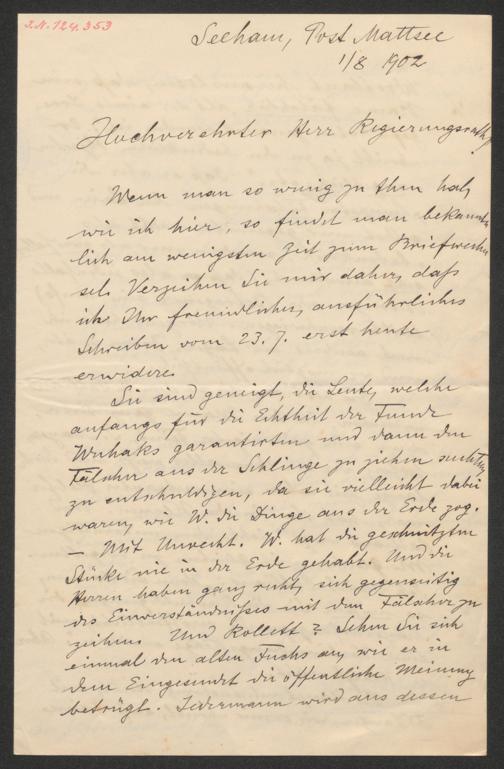 I.N. 124.353
Seeham, Post Mattsee
1/8 1902
Hochverehrter Herr Regierungsrath,
Wenn man so wenig zu thun hat,
wie ich hier, so findet man bekannt-
lich am wenigsten Zeit zum Briefwech-
sel. Verzeihen Sie mir daher, daß
ich Ihr freundliches, ausführliches
Schreiben vom 23. 7. erst heute
erwidere.
Sie sind geneigt, die Leute, welche
anfangs für die Echtheit der Funde
Wuhaks garantirten und dann den
Fälscher aus der Schlinge zu ziehen suchten,
zu entschuldigen, da sie vielleicht dabei
waren, wie W. die Dinge aus der Erde zog.
— Mit Unrecht. W. hat die geschnitzten
Stücke nie in der Erde gehabt. Und die
Herren haben ganz recht, sich gegenseitig
des Einverständnißes mit dem Fälscher zu
zeihen. Und Rollett? Sehen Sie sich
einmal den alten Fuchs an, wie er in
dem Eingesendet die öffentliche Meinung
betrügt. Jedermann wird aus dessen